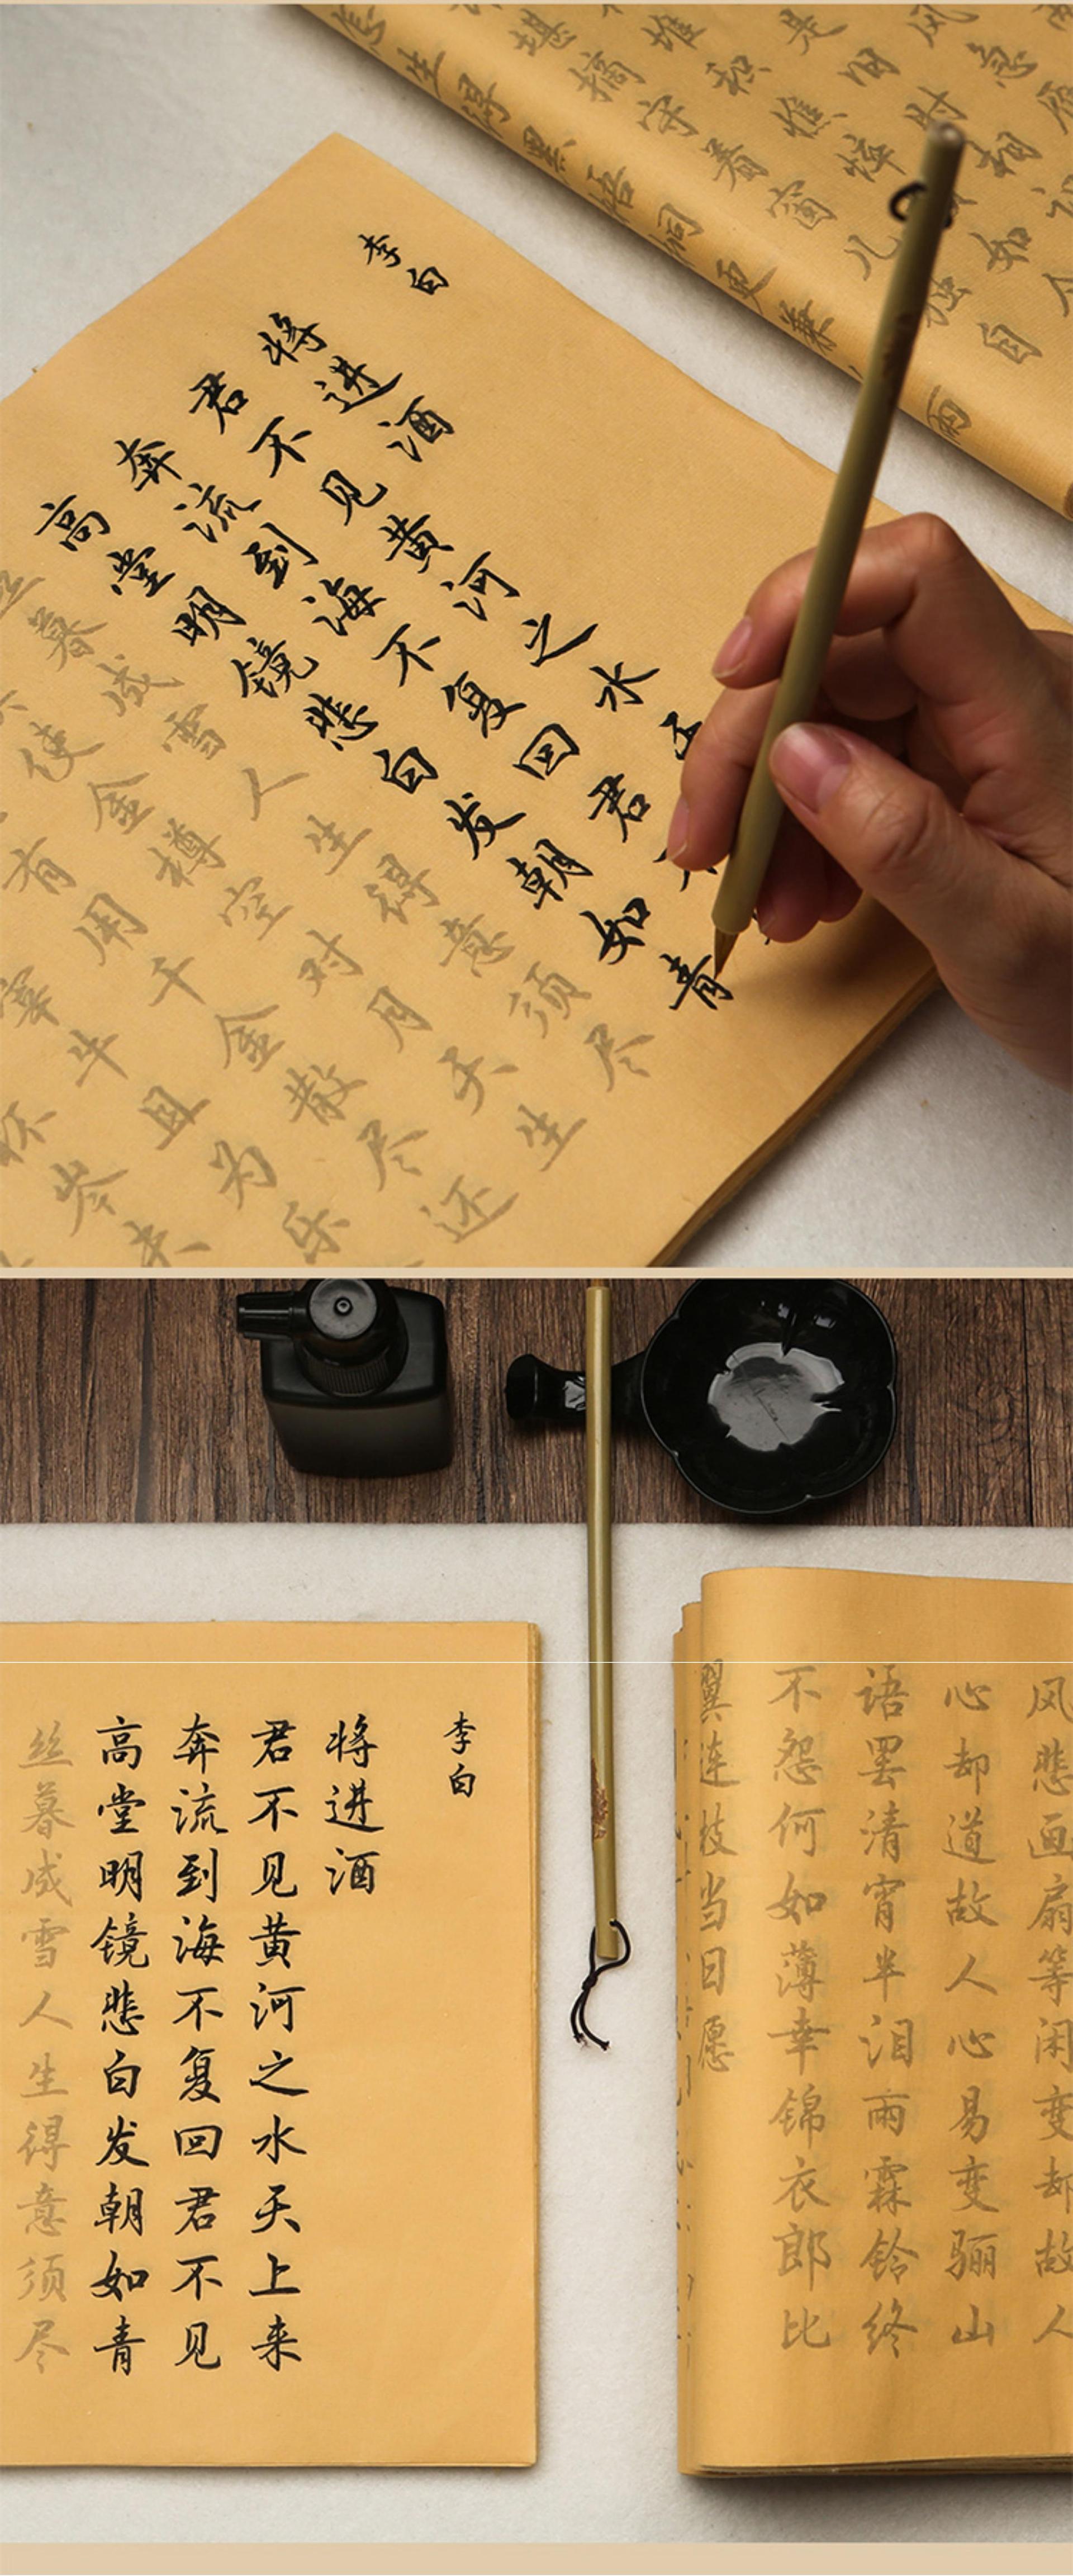 风急
是旧时相
堆积憔悴如
堪摘守着窗儿独自
生得黑梧桐更兼
雨
李白
将进酒
君不见黄河之水天
奔流到海不复回君
高堂明镜悲白发朝如青
丝暮成雪人生得意须尽
使金樽空对月天生
有用千金散尽还
宰牛且为乐
李白
将进酒
君不见黄河之水天上来
奔流到海不复回君不见
高堂明镜悲白发朝如青
丝暮成雪人生得意须尽
风悲画扇等闲变却故人
心却道故人心易变骊山
语罢清宵半泪雨霖铃终
不怨何如薄幸锦衣郎比
翼连枝当日愿